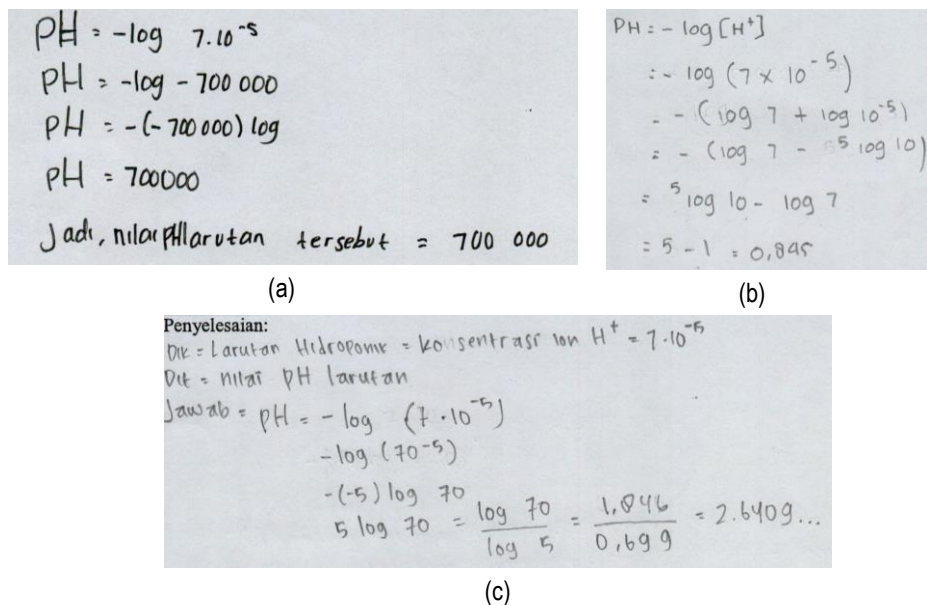 PH = -log 7.10⁻⁵
PH = -log - 700 000
PH = -(-700 000) log
PH = 700000
Jadi, nilai PH larutan tersebut = 700 000
(a)
PH = - log [H⁺]
= - log (7 x 10⁻⁵)
= - (log 7 + log 10⁻⁵)
= - (log 7 - ⁵log 10)
= ⁵log 10 - log 7
= 5 - 1 = 0,845
(b)
Penyelesaian:
Dik = Larutan Hidroponik = konsentrasi ion H⁺ = 7·10⁻⁵
Dit = nilai pH larutan
Jawab = PH = - log (7·10⁻⁵)
-log (70⁻⁵)
-(-5) log 70
5 log 70 = log 70 / log 5 = 1,846 / 0,699 = 2.6409...
(c)